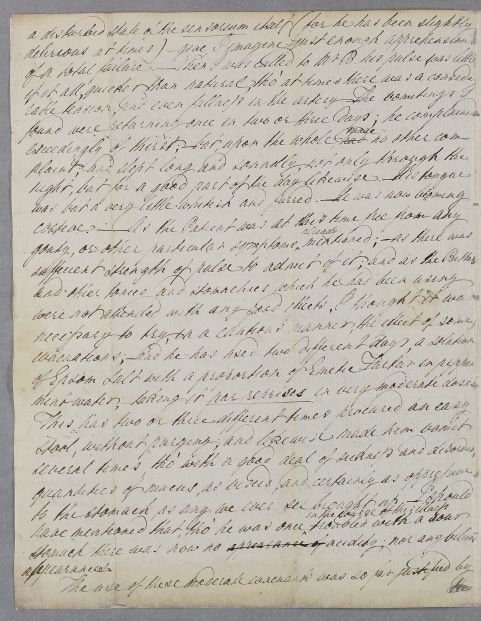 a disturbed state of the sensorium itself (for he has been slightly
delirious at times) give, I imagine just enough apprehension
of a total failure. — When I was called to Mr B his pulse was little
if at all quicker than natural, tho' at times there was a conside
rable tension, and even fulness in the artery — The vomitings I
found were returning once in two or three days; he complained
exceedingly of thirst; but upon the whole made no other com
plaint, and slept long and soundly, not only through the
night, but for a good part of the day likewise — His tongue
was but a very little whitish and furred. — He was now
costive. — As the Patient was at this time free from any
gouty, or other particular symptoms, already mentioned; — as there was
sufficient strength of pulse to admit of it; and as the Bitters
and other tonics and stomachics which he had been using
were not attended with any good effects, I thought it was
necessary to try in a cautious manner, the effect of some
evacuations; and he has used two different days, a solution
of Epsom Salt with a proportion of Emetic Tartar in pepper
mint water; taking it par reprises in very moderate doses
This, has two or three different times procured an easy
stool, without purging, and likewise made him vomit
several times, tho' with a good deal of sickness and
quantities of mucus, as viscid, and certainly as oppressive
to the stomach as any we ever see brought up. — I should
have mentioned that, tho' he was once in the course of the illness troubled with a sour
stomach there was now no appearance of acidity, nor any bilious
appearances.
The use of these moderate evacuants was so far justified by
the